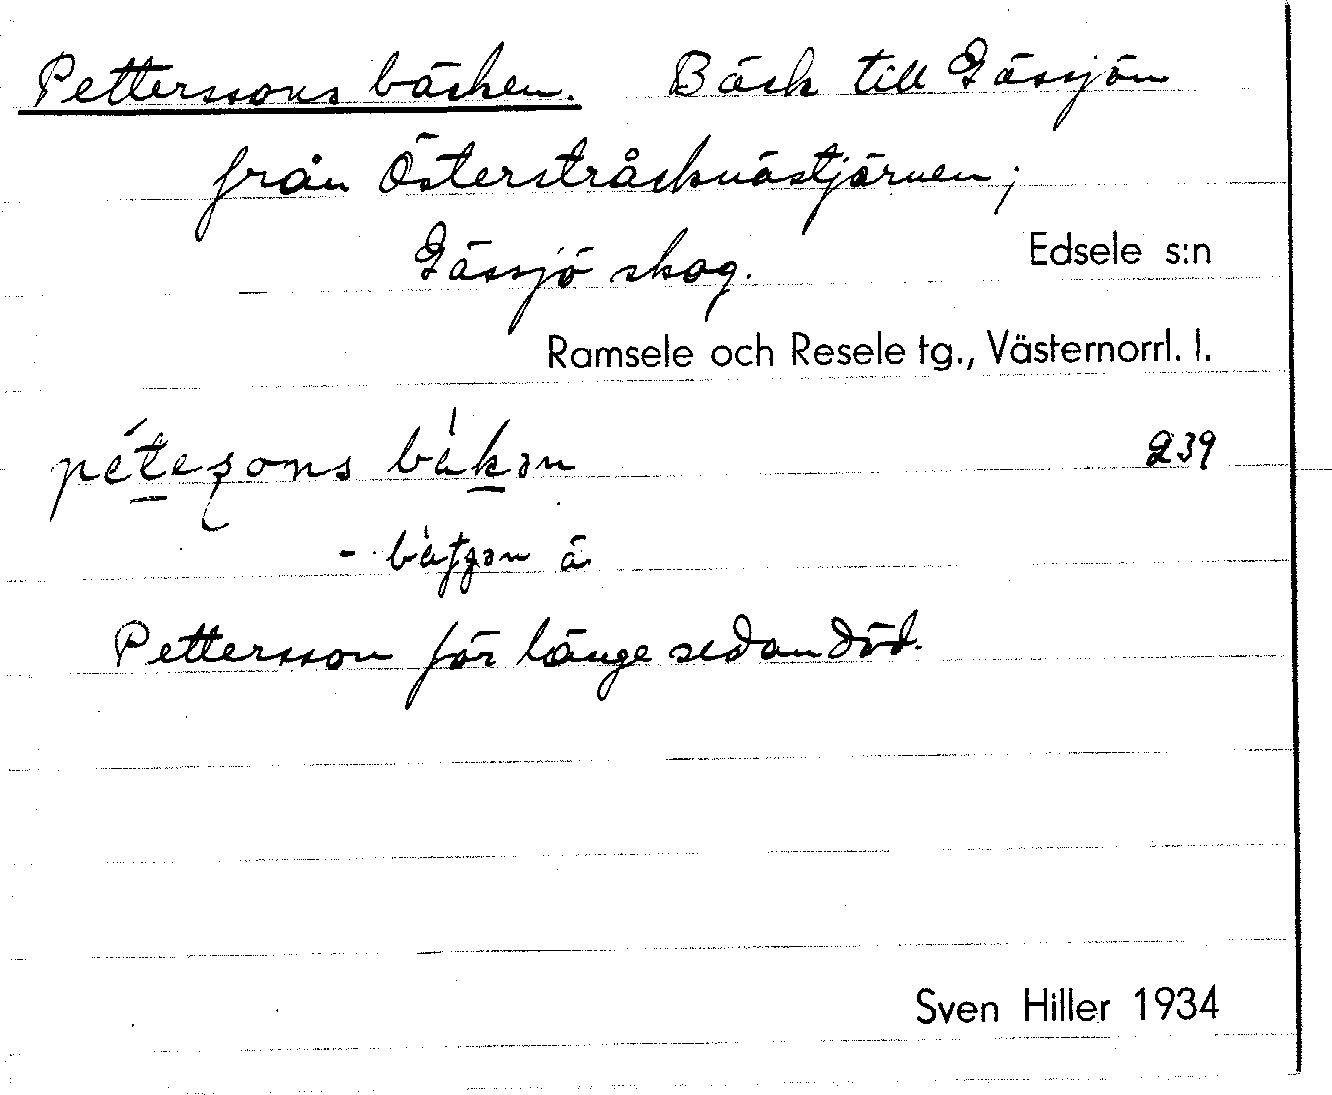 Petterssons bäcken. Bäck till Gässjön
från Österstråsknästjärnen;
Gässjö skog. Edsele s:n
Ramsele och Resele tg., Västernorrl. l.
239
Pettersson för länge sedan död.
Sven Hiller 1934